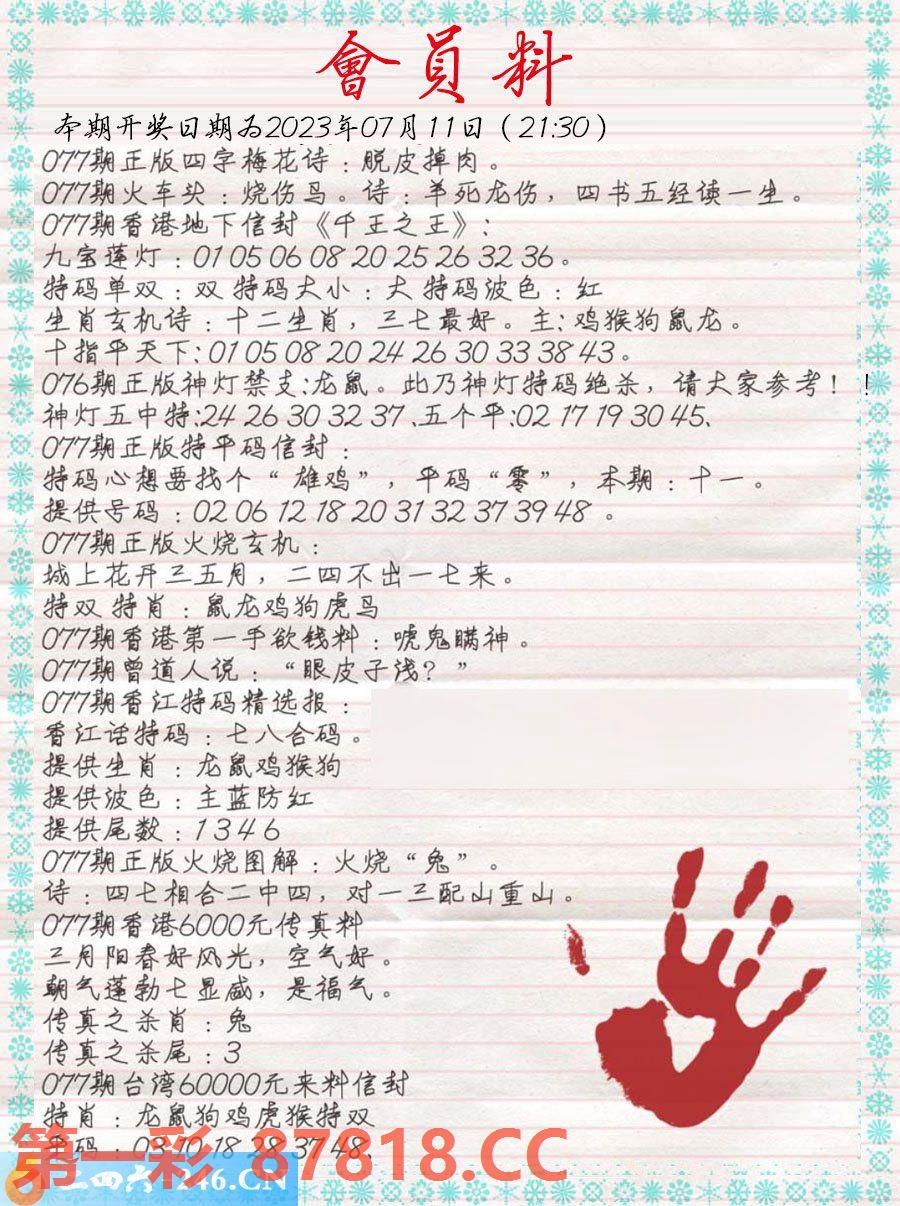 會員料
本期开奖日期为2023年07月11日（21:30）
077期正版四字梅花诗：脱皮掉肉。
077期火车头：烧伤鸟。诗：羊死龙伤，四书五经读一生。
077期香港地下信封《千王之王》：
九宝莲灯：01 05 06 08 20 25 26 32 36。
特码单双：双 特码大小：大 特码波色：红
生肖玄机诗：十二生肖，三七最好。主：鸡猴狗鼠龙。
十指平天下：01 05 08 20 24 26 30 33 38 43。
076期正版神灯禁支:龙鼠。此乃神灯特码绝杀，请大家参考！！
神灯五中特:24 26 30 32 37、五个平:02 17 19 30 45、
077期正版特平码信封：
特码心想要找个“雄鸡”，平码“零”，本期：十一。
提供号码：02 06 12 18 20 31 32 37 39 48。
077期正版火烧玄机：
城上花开三五月，二四不出一七来。
特双 特肖：鼠龙鸡狗虎马
077期香港第一手欲钱料：唬鬼瞒神。
077期曾道人说：“眼皮子浅？”
077期香江特码精选报：
香江话特码：七八合码。
提供生肖：龙鼠鸡猴狗
提供波色：主蓝防红
提供尾数：1 3 4 6
077期正版火烧图解：火烧“兔”。
诗：四七相合二中四，对一三配山重山。
077期香港6000元传真料
三月阳春好风光，空气好。
朝气蓬勃七显感，是福气。
传真之杀肖：兔
传真之杀尾：3
077期台湾60000元来料信封
特肖：龙鼠狗鸡虎猴特双
平码：03 10 18 28 37 48、
第一彩 87818.CC
二四六 246.CN